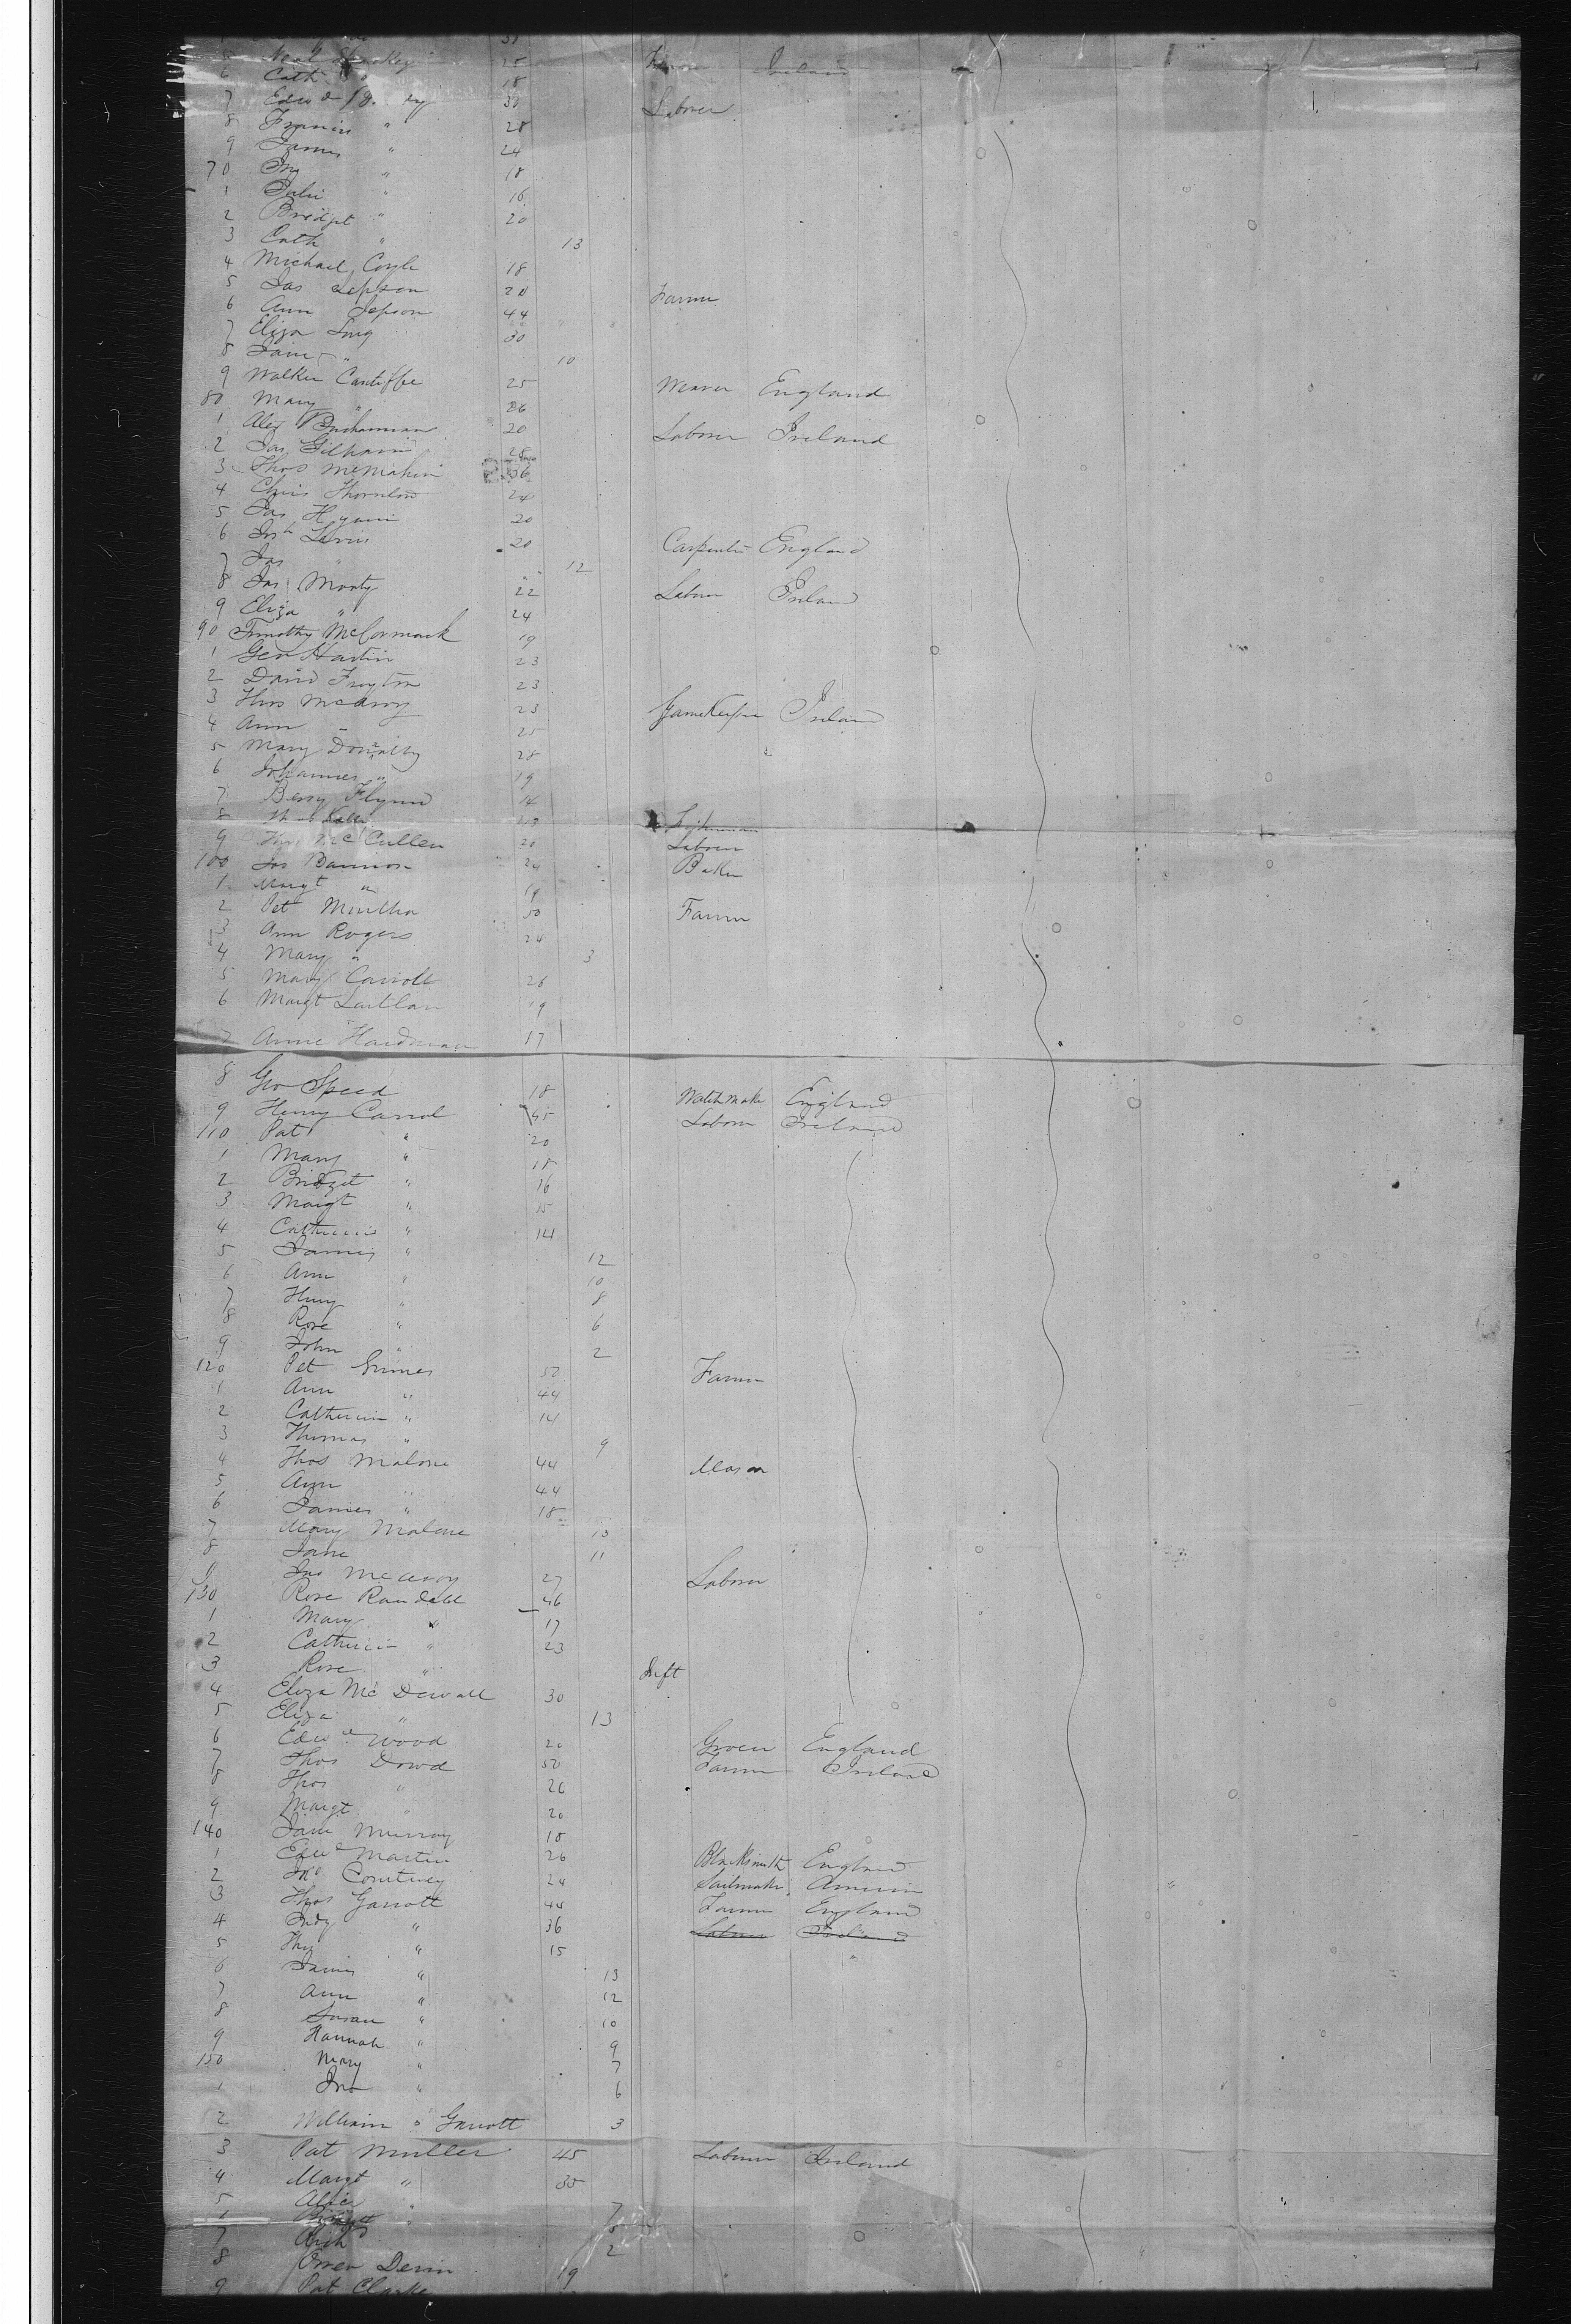 5 25 Ireland
6 Cath " 18
7 Edwd 30 Laborer
8 Francis " 28
9 James " 24
70 Jno " 18
1 Julia " 16
2 Bridget " 20
3 Cath " 13
4 Michael Coyle 18
5 Jas Jepson 20 Farmer
6 Ann Jepson 44
7 Eliza Long 30
8 Jane " 10
9 Walker Cantiffe 25 Weaver England
80 Mary " 26
1 Alex Buchannan 20 Laborer Ireland
2 Jas 25
3 Thos McMahin 36
4 Chris Thornlow 24
5 Jas 20
6 Jos Lewis 20 Carpenter England
7 Jas " 12
8 Jas Monty 22 Laborer Ireland
9 Eliza " 24
90 Timothy McCormack 19
1 Geo Hartin 23
2 David 23
3 Thos McAvoy 23 Gamekeeper Ireland
4 Ann " 25
5 Mary Donnally 28
6 Johannes " 19
7 Bessy Flynn 14
8
9 Thos McCullen 20 Laborer
100 Jas Bannion 24 Baker
1 Margt " 19
2 Pet Murtha 50 Farmer
3 Ann Rogers 24
4 Mary " 3
5 Mary Carroll 26
6 Margt 19
7 Anne Hardman 17
8 Geo Speed 18 Watchmaker England
9 Henry Carrol 45 Laborer Ireland
110 Pat " 20
1 Mary " 18
2 Bridget " 16
3 Margt " 15
4 Catherine " 14
5 James " 12
6 Ann " 10
7 Henry " 8
8 Rose " 6
9 John " 2
120 Pet Grimes 50 Farmer
1 Ann " 44
2 Catherine " 14
3 Thomas " 9
4 Thos Malone 44 Mason
5 Ann " 44
6 James " 18
7 Mary Malone 13
8 Jane 11
9 Jno McAvoy 27 Laborer
130 Rose Randall 46
1 Mary " 17
2 Catherine " 23
3 Rose " Inft
4 Eliza McDewall 30
5 Eliza " 13
6 Edwd Wood 20 Grocer England
7 Thos Dowd 50 Farmer Ireland
8 Thos " 26
9 Margt " 20
140 Jane Murray 18
1 Edwd Martin 26 Blacksmith England
2 Jno Courtney 24 Sailmaker America
3 Thos Garrott 44 Farmer England
4 Judy " 36 Laborer Ireland
5 Thos " 15 "
6 James " 13
7 Ann " 12
8 Susan " 10
9 Hannah " 9
150 Mary " 7
1 Jno " 6
2 William " Garrott 3
3 Pat Muller 45 Laborer Ireland
4 Margt " 35
5 Alice " 7
6 "
7 2
8 Owen Devin 19
9 Pat Clarke